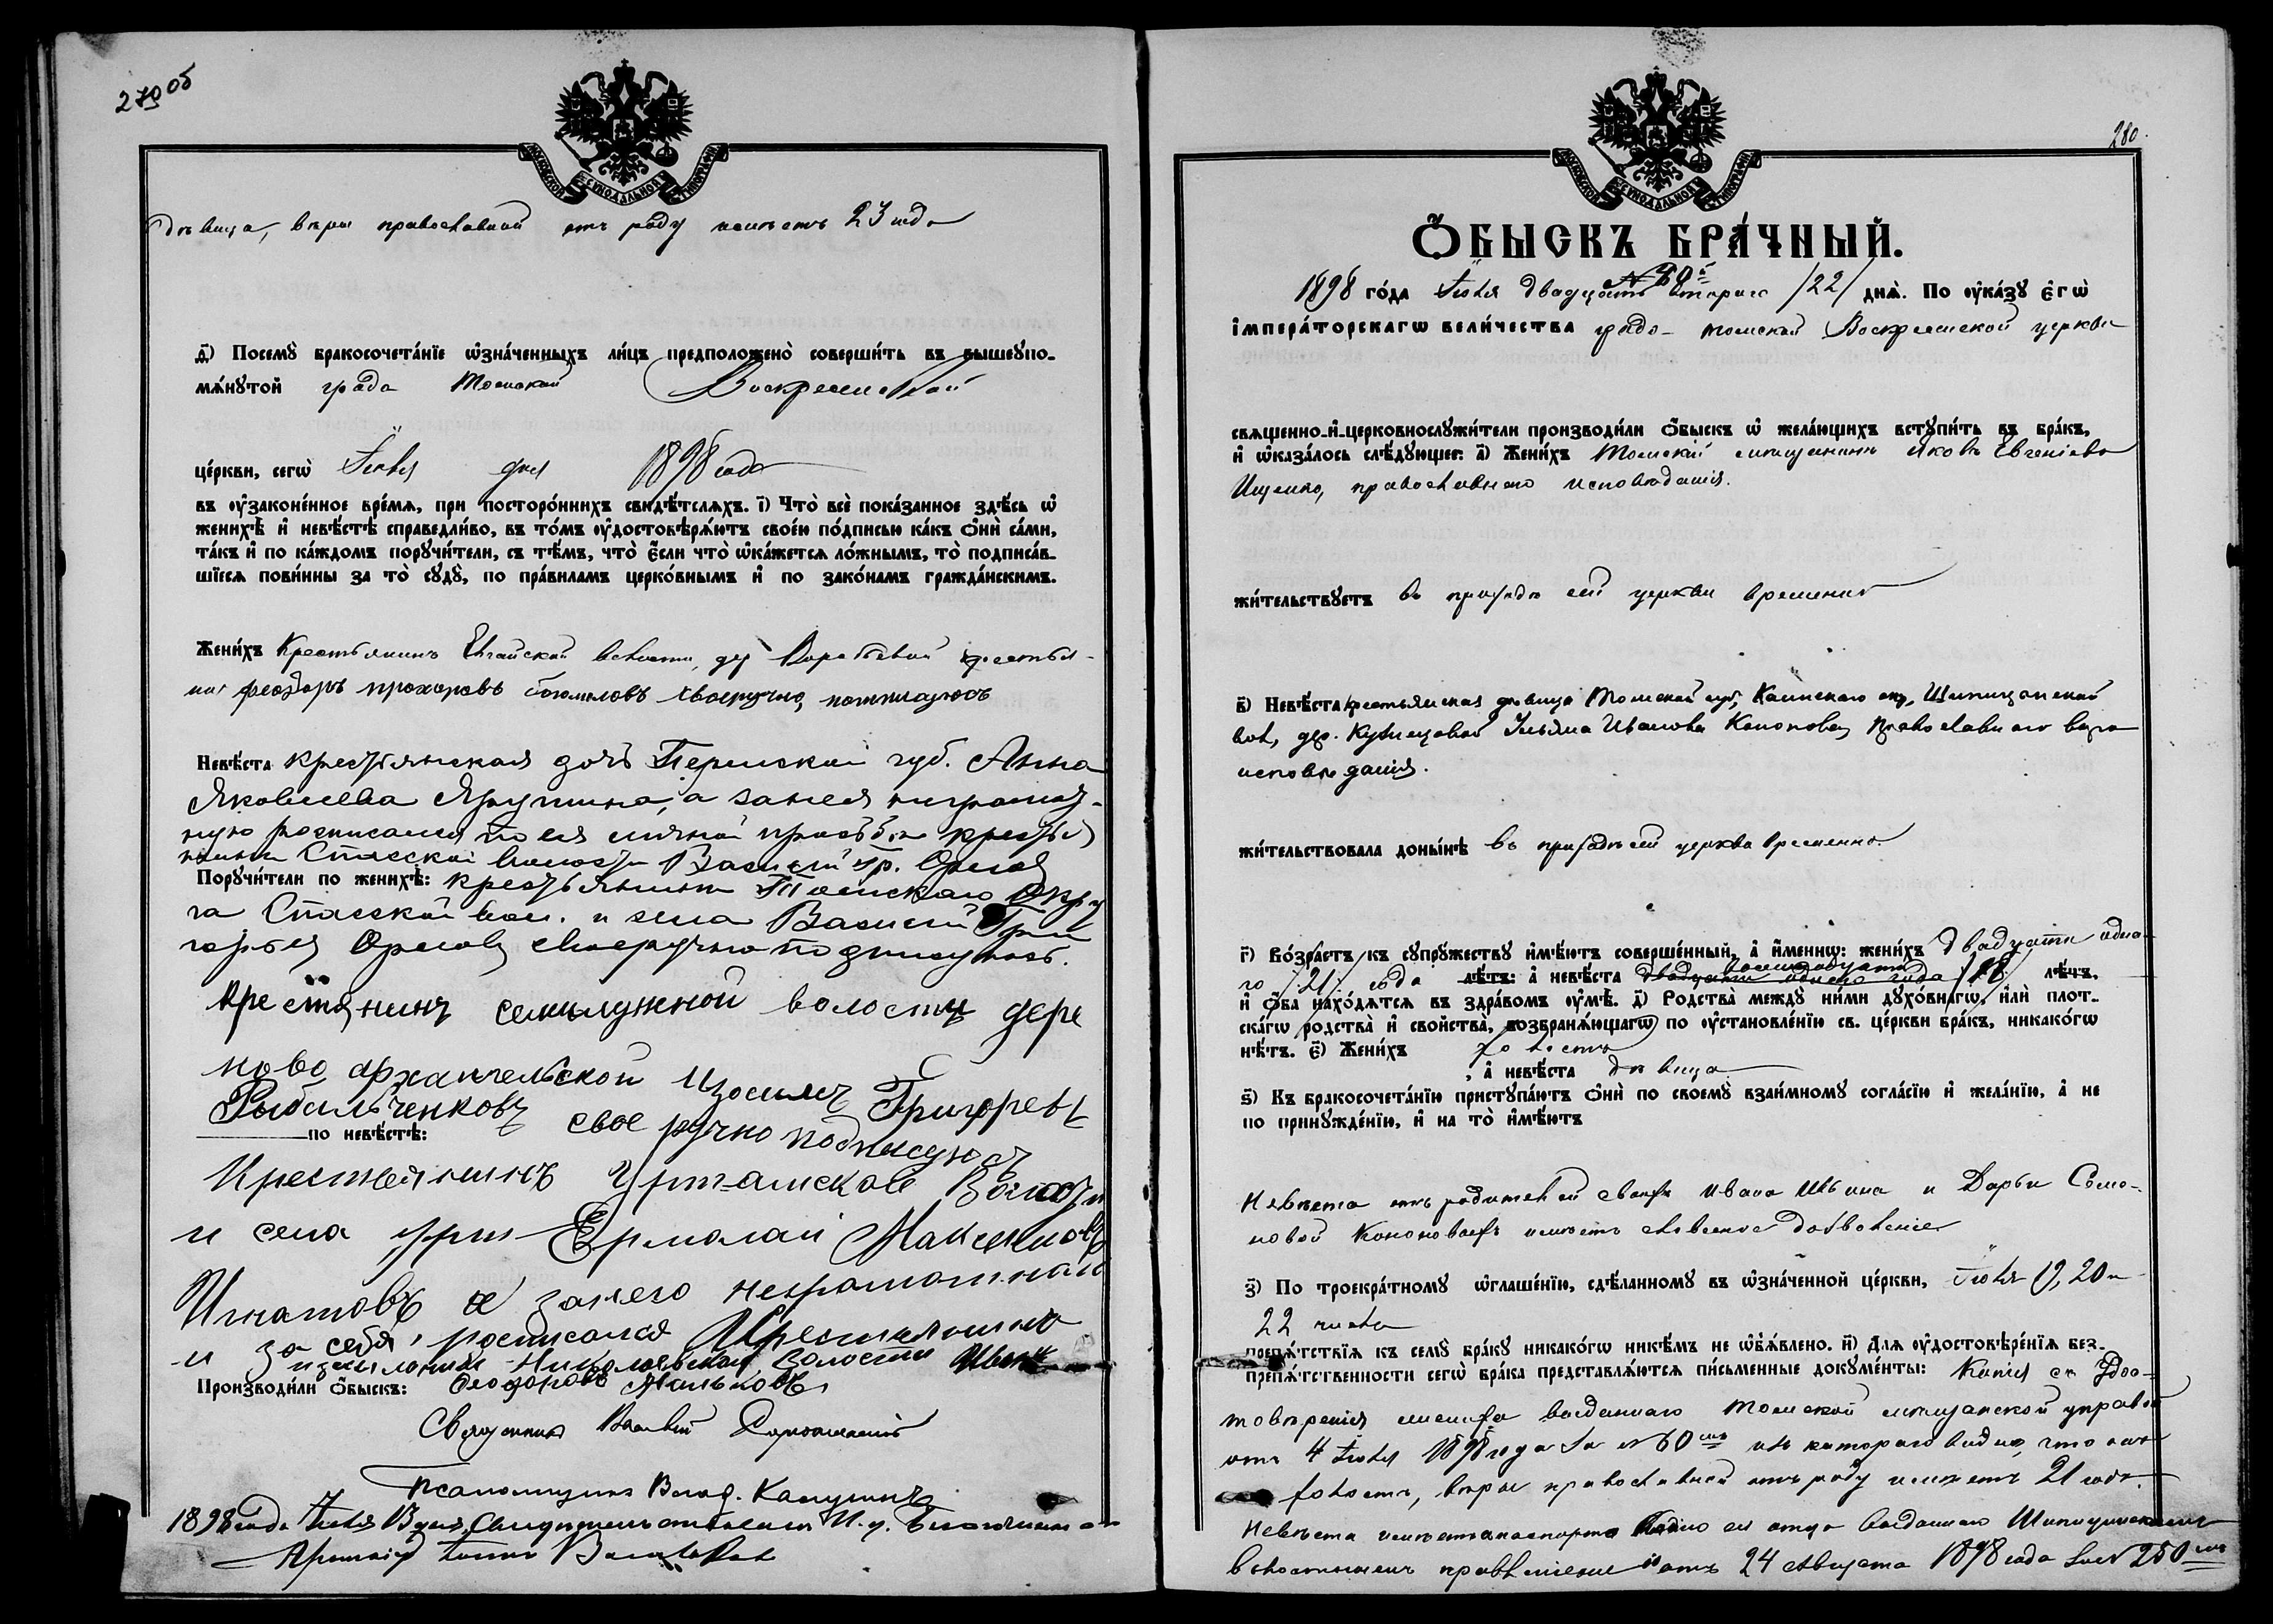 270 об
МОСКОВСКОЙ СѴНОДАЛЬНОЙ ТИПОГРАФІИ
дѣвица, вѣры православной отъ роду имѣетъ 23 года
д҃) Посемꙋ̀ бракосочета́нїе ѡ҆зна́ченныхъ ли́цъ предположено̀ соверши́ть въ вышеꙋпо-
мѧ́нꙋтой града Томской Воскресенской
це́ркви, сегѡ̀ Іюля дня 1898 года
въ ᲂу҆зако́ненное вре́мѧ, при посторо́ннихъ свидѣ́телѧхъ. і҃) Что̀ всѐ пока́занное здѣ́сь ѡ҆
женихѣ̀ и҆ невѣ́стѣ справедли́во, въ то́мъ ᲂу҆достовѣрѧ́ютъ свое́ю по́дписью ка́къ ѻ҆нѝ са́ми,
та́къ и҆ по ка́ждомъ порꙋчи́тели, съ тѣ́мъ, что̀ є҆́сли что̀ ѡ҆ка́жетсѧ ло́жнымъ, то̀ подписа́в-
шїесѧ пови́нны за то̀ сꙋдꙋ̀, по пра́виламъ церко́внымъ и҆ по зако́намъ гражда́нскимъ.
Жени́хъ Крестьянинъ Елгайской волости, дер Воробьевой крестья-
нинъ феодоръ прохоровъ своеручно
Невѣ́ста крестьянская дочь Пермской губ. Анна
Яковлева а за нея неграмот-
ную росписался по ея личной просьбѣ кресть
янинъ Спасской волости Василий Гр. Орлов
Порꙋчи́тели по женихѣ̀: крестьянинъ Томскаго Окру
га Спасской вол. и села Василий Гри
горьев Орлов своеручно подписуюсь.
Крестянинъ семилужной волости дере
ново архангельской Григорьевъ
Рыбальченковъ свое ручно подписуюсь
по невѣ́стѣ:
Крестьянинъ Уртамской Волости
и села Ермолай Максимовъ
Игнатовъ а за него неграмотнаго
и за себя росписался Крестьянинъ
Николаевской волости Иванъ
Производи́ли ѻ҆́быскъ: Феодоровъ Мальковъ
Священникъ
Псаломщикъ Влад. Капустинъ
1898 года Іюля
280.
МОСКОВСКОЙ СѴНОДАЛЬНОЙ ТИПОГРАФІИ
Ѻ҆́БЫСКЪ БРА́ЧНЫЙ.
№ 80й
1898 го́да Іюля двадцать втораго /22/ днѧ̀. По ᲂу҆ка́зꙋ є҆гѡ̀
і҆мпера́торскагѡ вели́чества градо-Томской Воскресенской церкви
свѧщенно-и҆-церковнослꙋжи́тели производи́ли ѻ҆́быскъ ѡ҆ жела́ющихъ встꙋпи́ть въ бра́къ,
и҆ ѡ҆каза́лось слѣ́дꙋющее: а҃) Жени́хъ Томский мѣщанинъ Яковъ Евгеніевъ
Ищенко, православнаго исповѣданія.
жи́тельствꙋетъ въ приходѣ сей церкви временно
в҃) Невѣ́ста крестьянская дѣвица Томской губ, Каинскаго окр, Шипицинской
вол, дер. Кузнецовой Ульяна Иванова Кононова, Православнаго вѣро
исповѣданія.
жи́тельствовала доны́нѣ въ приходѣ сей церкви временно
г҃) Во́зрастъ къ сꙋпрꙋ́жествꙋ и҆мѣ́ютъ соверше́нный, а҆ и҆́менно: жени́хъ двадцати одно-
го /21/ года лѣ́тъ: а҆ невѣ́ста двадцати одного года восемнадцати /18/ лѣ́тъ,
и҆ ѻ҆́ба нахо́дѧтсѧ въ здра́вомъ ᲂу҆мѣ̀. д҃) Родства̀ междꙋ̀ ни́ми дꙋхо́внагѡ, и҆лѝ плот-
ска́гѡ родства̀ и҆ свойства̀, возбранѧ́ющагѡ по ᲂу҆становле́нїю св. це́ркви бра́къ, никако́гѡ
нѣ́тъ. є҃) Жени́хъ холостъ
, а҆ невѣ́ста дѣвица
ѕ҃) Къ бракосочета́нїю пристꙋпа́ютъ ѻ҆нѝ по своемꙋ̀ взаи́мномꙋ согла́сїю и҆ жела́нїю, а҆ не
по принꙋжде́нїю, и҆ на то̀ и҆мѣ́ютъ
Невѣста отъ родителей своихъ Ивана Ильина и Дарьи Семе-
новой Кононовыхъ имѣетъ словесное дозволеніе
з҃) По троекра́тномꙋ ѡ҆глаше́нїю, сдѣ́ланномꙋ въ ѡ҆зна́ченной це́ркви, Іюля 19, 20 и
22 числа
препѧ́тствїѧ къ семꙋ̀ бра́кꙋ никако́гѡ никѣ́мъ не ѡ҆б̾ѧ́влено. и҃) Длѧ ᲂу҆достовѣре́нїѧ без-
препѧ́тственности сегѡ̀ бра́ка представлѧ́ютсѧ пи́сьменные докꙋме́нты: Копія съ Удос-
товѣренія жениха выданнаго Томской мѣщанской управой
отъ 4 Іюля 1898 года за № 60мъ изъ котораго видно, что онъ
холостъ, вѣры православной отъ роду имѣетъ 21 годъ.
Невѣста имѣетъ паспортъ отца выданный Шипицинскимъ
волостнымъ правленіемъ отъ 24 августа 1898 года за № 250мъ